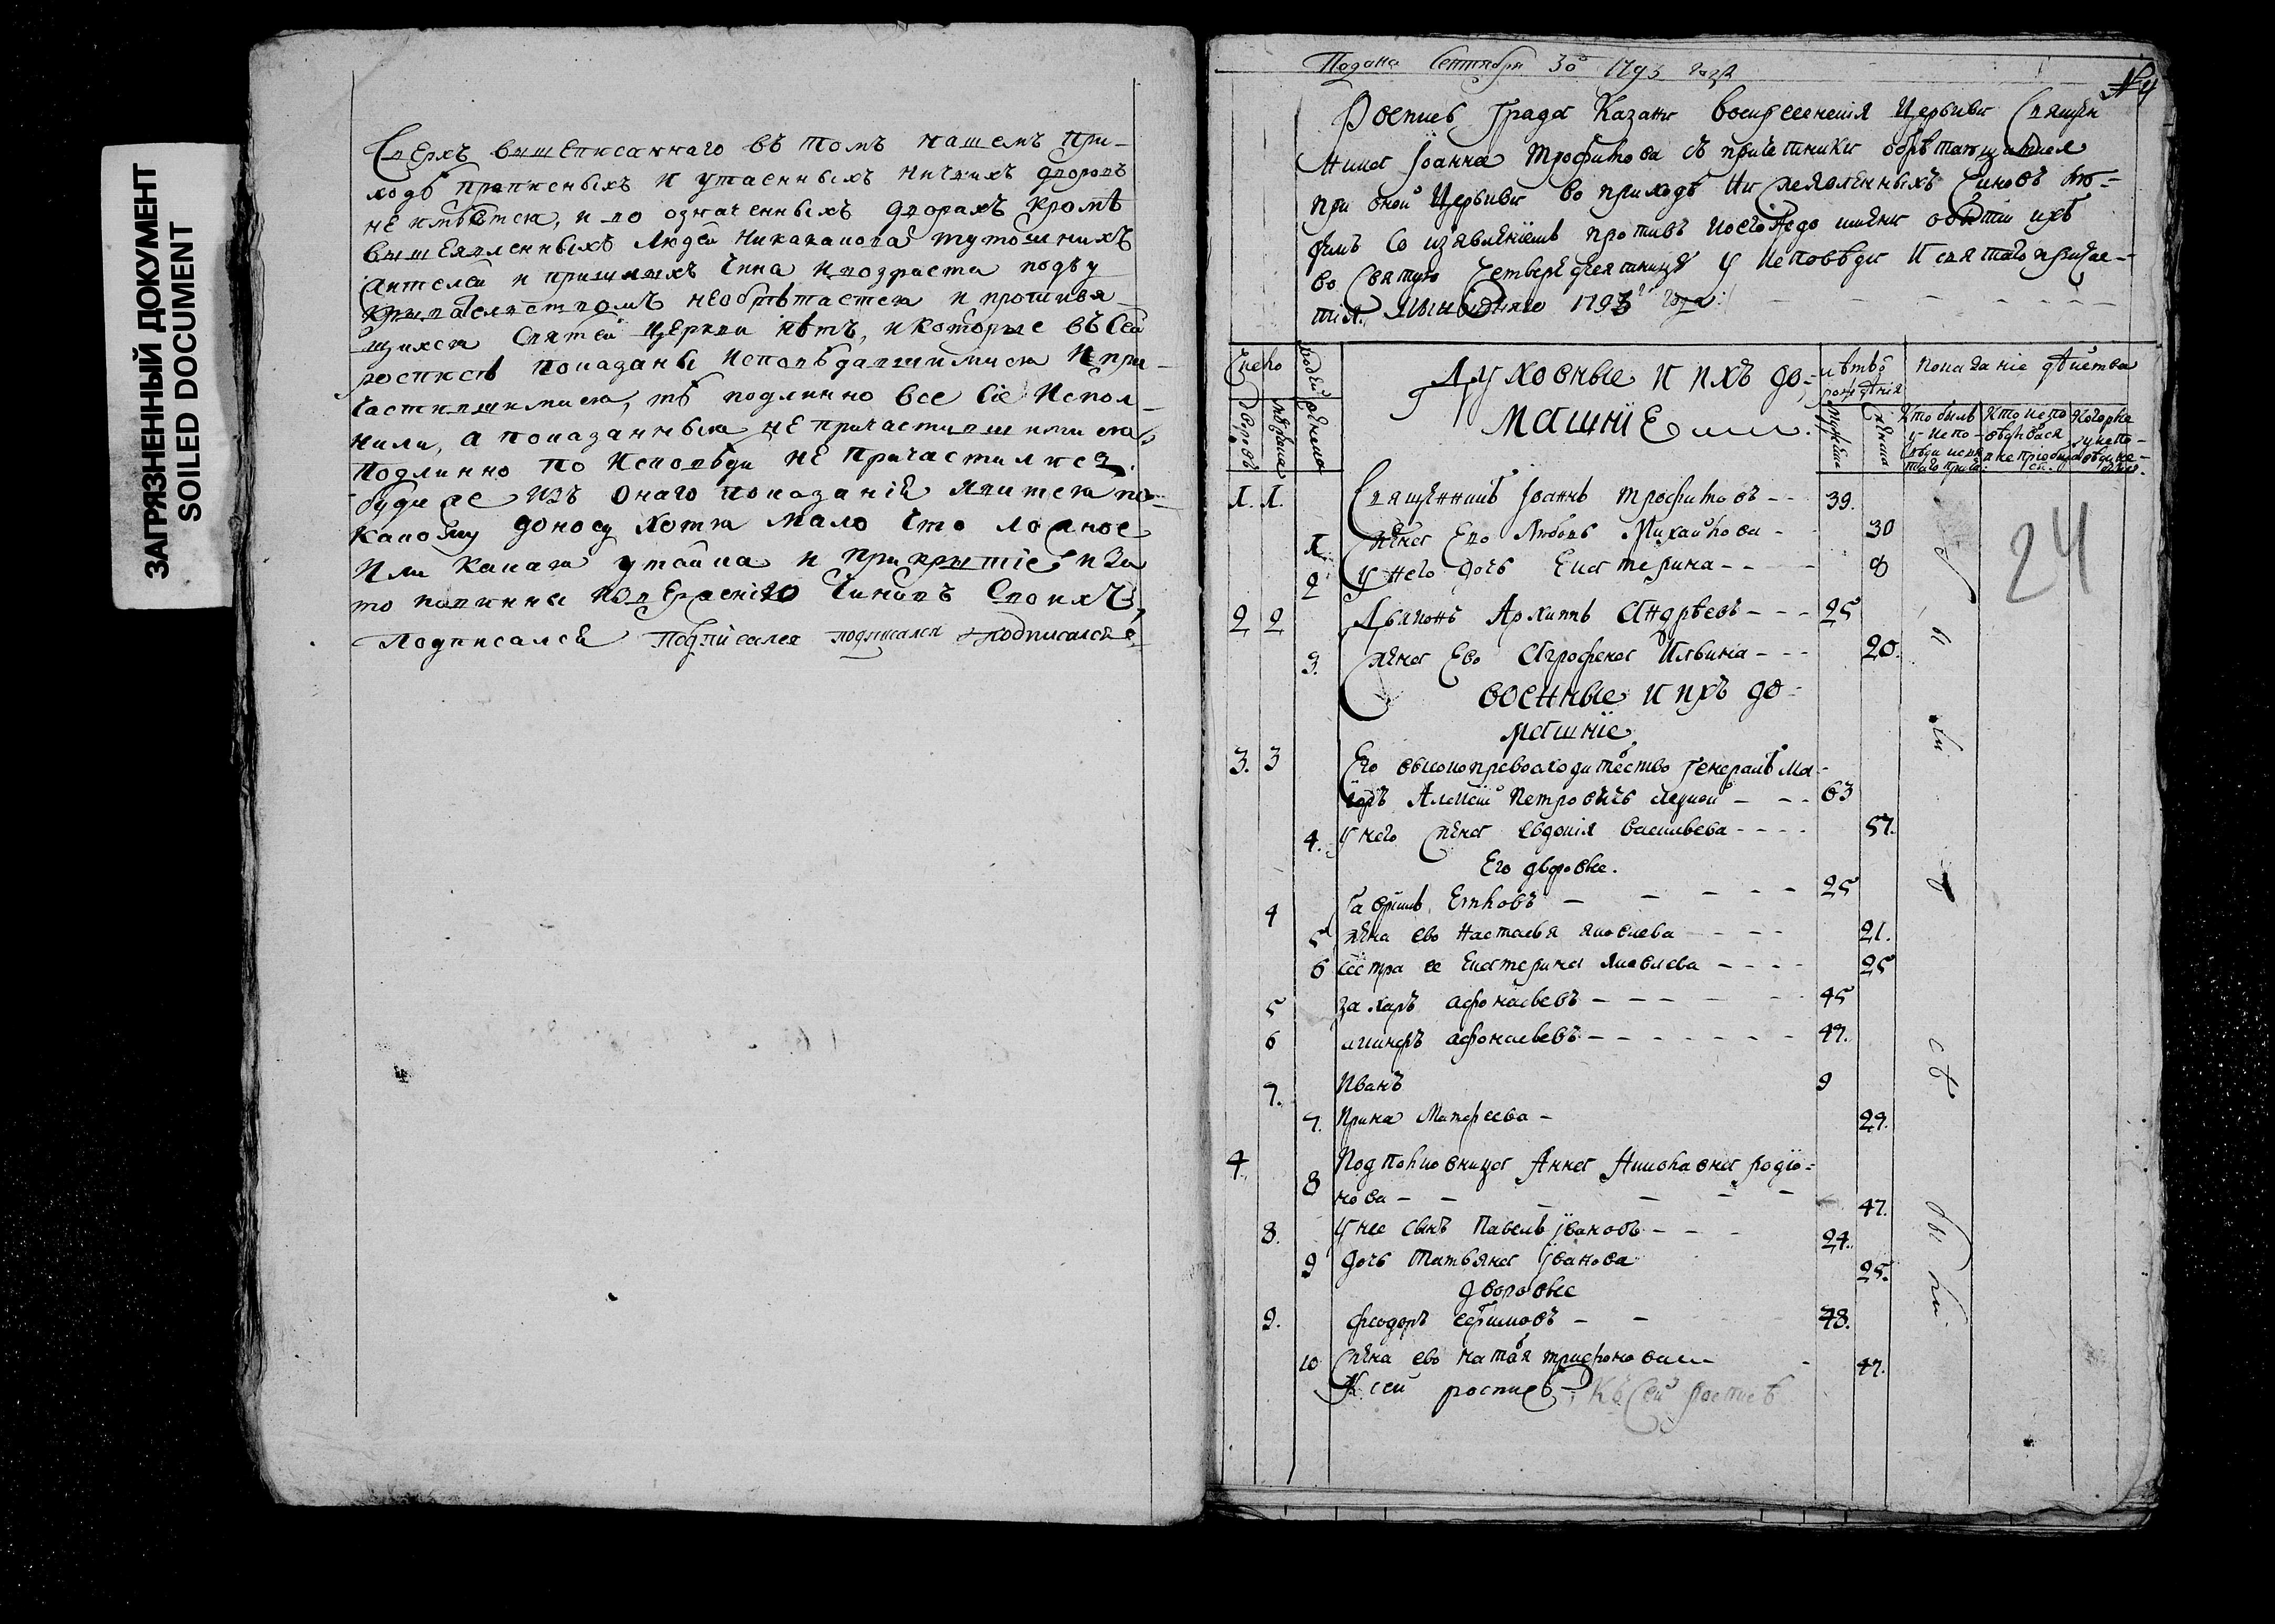 ЗАГРЯЗНЕННЫЙ ДОКУМЕНТ
SOILED DOCUMENT
Сверхъ вышеписаннаго въ томъ нашемъ при-
ходѣ прописныхъ и утаенныхъ ничьихъ дворовъ
не имѣется, и во означенныхъ дворахъ кромѣ
вышеявленныхъ людей никакакова тутошнихъ
жителей и пришлыхъ чина и возраста подъ у
крывателствомъ необрѣтается и противя
щихся святей церкви нѣтъ, и которые въ сей
росписѣ показаны исповѣдавшимися и при
частившимися, тѣ подлинно все сіе испол-
нили, а показанныя не причастившимися
подлинно по исповѣди не причастилися
буди же изъ онаго показаній явится по
какому доносу хотя мало что ложное
или какая утайка и прикрытіе, и за
то повинны извержению чиновъ своихъ,
Подписался подписался подписался подписался
Подана Сентября 30 1793 года
№ 4
Роспись града Казани воскресенскія церькви священ
ника Іоанна Трофимова съ причетники обрѣтающимися
при оной церькви во приходѣ нижеявленныхъ чиновъ лю-
демъ со изявленіемъ противъ коегождо имяни о бытіи ихъ
во святую четыредесятницу у исповѣди и святаго причас-
тія. 1793 года
Число
дворовъ
людей
мужеска
женска
Духовные и ихъ до-
машніе
лѣтъ от
рожденія
мужеска
женска
показаніе дѣйства
Кто былъ
у испо-
вѣди и свя
таго прич:
Кто испо
вѣдывался
а не приобща
ся.
Которые
у испо-
вѣди не
были.
1. 1. Священникъ Іоаннъ Трофимовъ - - 39.
1 жена его Любовь Михайлова - 30
2 у него дочь Екатерина - - - 8
2 2 Дьяконъ Архипъ Андреевъ - - - 25
3. жена ево Агрофена Ильина - - - 20.
военные и ихъ до-
машніе
3. 3 Его высокопревосходителство генералъ Ма-
іоръ Алексѣй Петровичъ - - - 63
4. у него жена Евдокія Васильева - - - - 57.
Его дворовые.
4 Гаврилъ - - - - 25
5 жена ево Настасья Яковлева - - - - 21.
6 сестра ее Екатерина Яковлева - - - - 25
5 Захаръ Афонасьевъ - - - - - - 45
6 Афонасьевъ - - - - - - - 47.
7. Иванъ 9
7. Ирина Матфеева - 29.
4. 8 Подполковница Анна Николаевна Родіо-
нова - - - - - - 47.
8. у нее сынъ Павелъ Ивановъ - - - 24.
9 дочь Татьяна Иванова 25.
дворовые
9. Феодоръ Ефимовъ - - 48.
10 жена ево Наталья Трифонова 47.
К сей росписѣ Къ сей росписѣ
в с ѣ
были
24